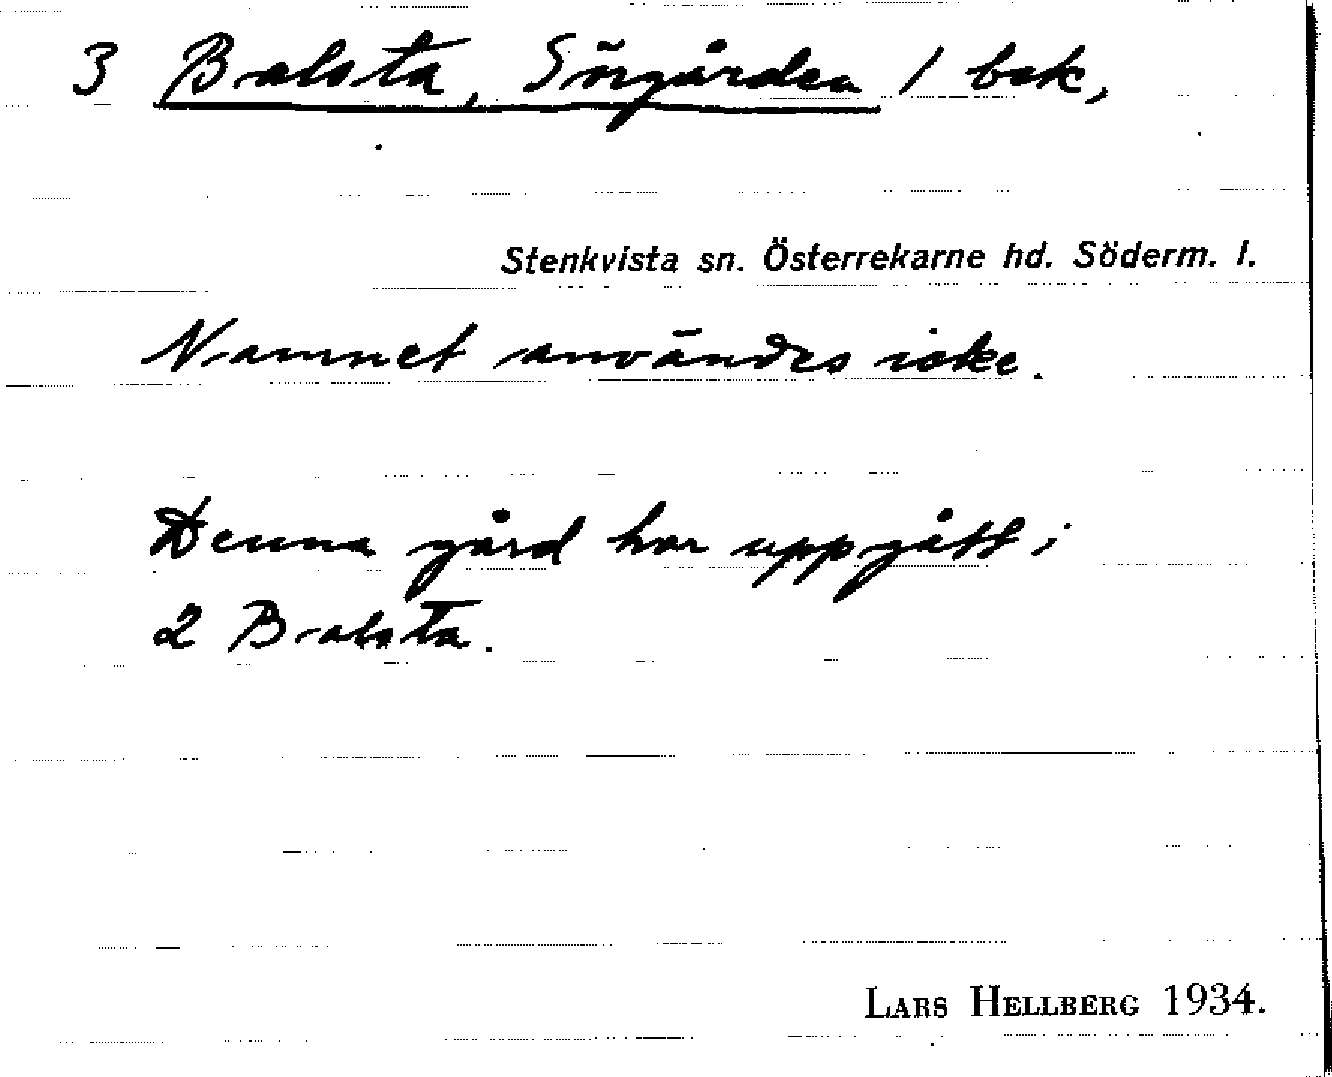 3 Balsta, Sörgården 1 bok,
Stenkvista sn. Österrekarne hd. Söderm. l.
Namnet användes icke.
Denna gård har uppgått i
2 Balsta.
LARS HELLBERG 1934.